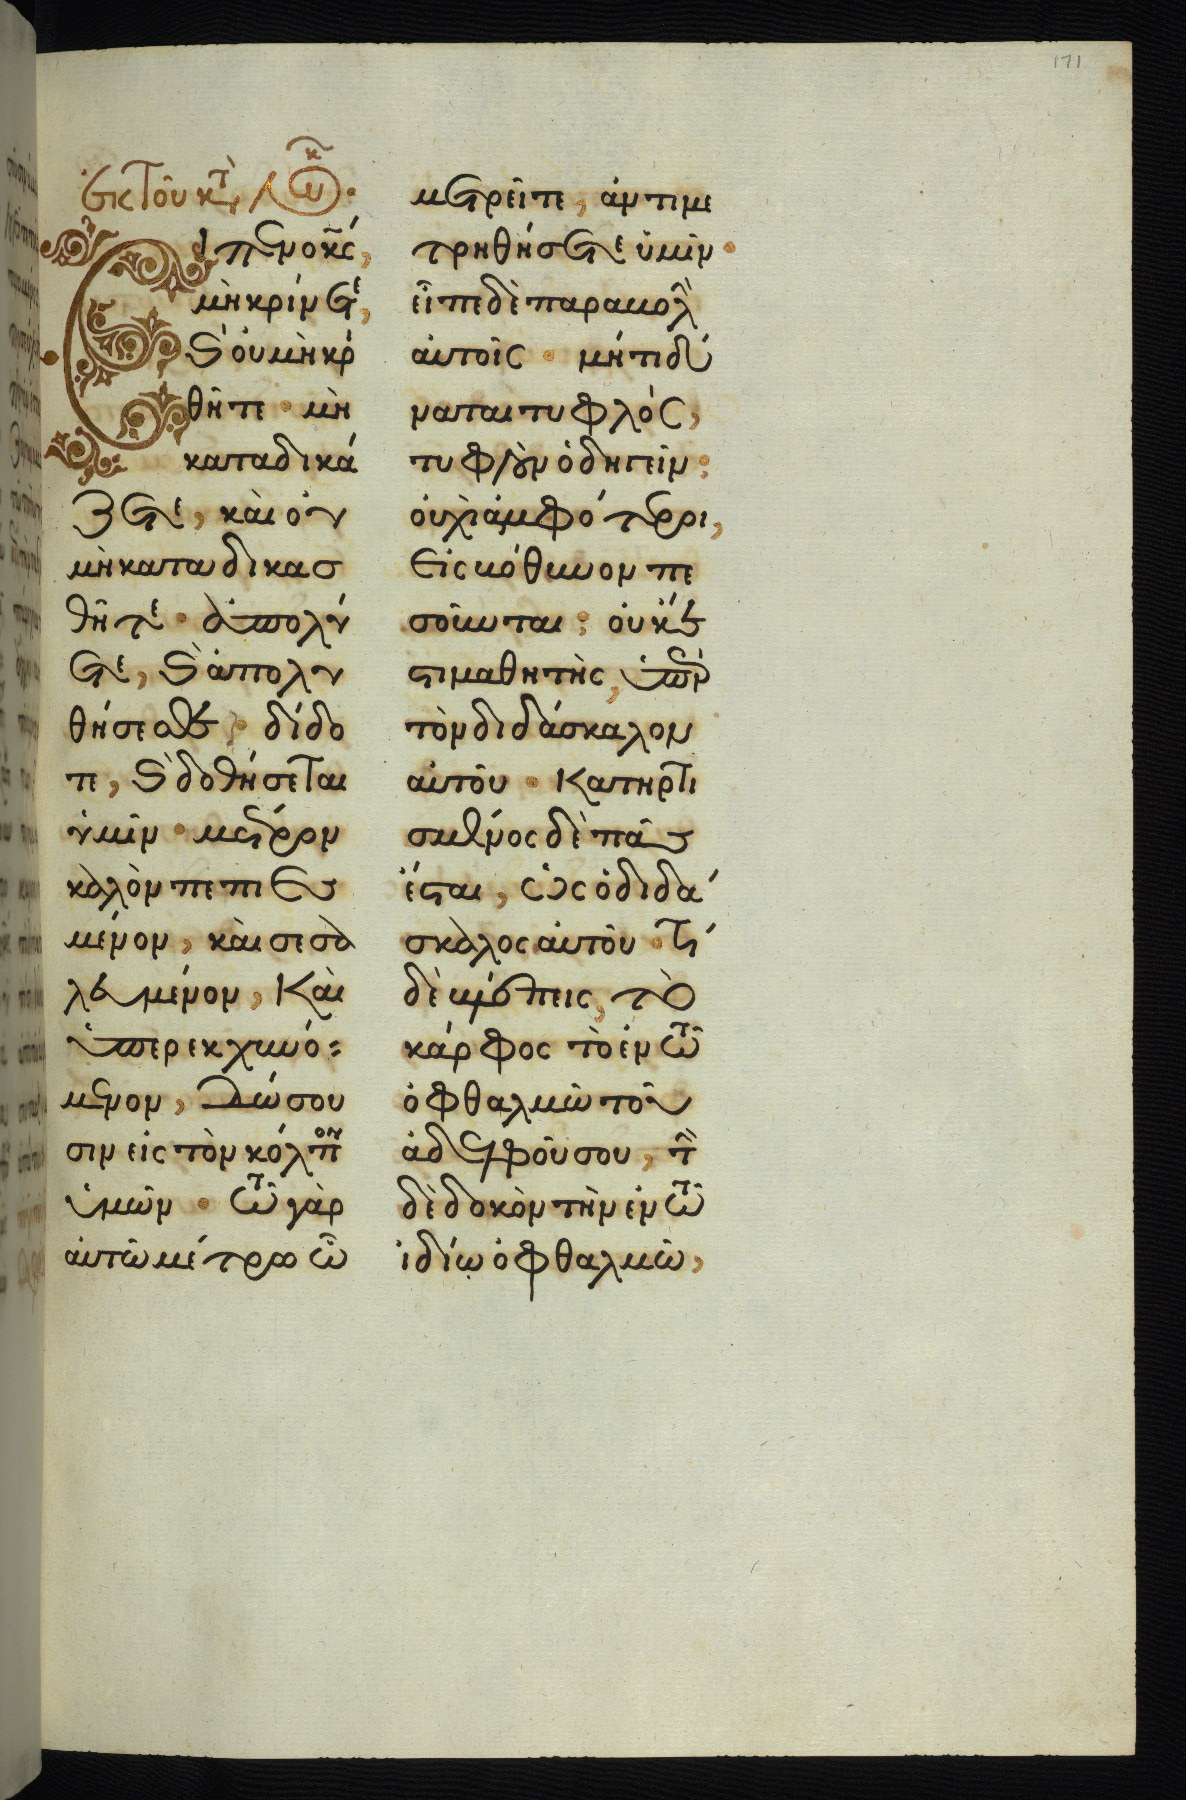 171
ἐκ τοῦ κτ λουκ.
Εἶπεν ὁ κς,
μὴ κρίνετε,
καὶ οὐ μὴ κρι
θῆτε· μὴ
καταδικά
ζετε, καὶ οὐ
μὴ καταδικασ
θῆτε· ἀπολύ
ετε, καὶ ἀπολυ
θήσεσθε· δίδο
τε, καὶ δοθήσεται
ὑμῖν· μέτρον
καλὸν πεπιεσ
μένον, καὶ σεσα
λευμένον, καὶ
ὑπερεκχυνό-
μενον, δώσου
σιν εἰς τὸν κόλπον
ὑμῶν· τῷ γὰρ
αὐτῷ μέτρῳ ᾧ
μετρεῖτε, ἀντιμε
τρηθήσεται ὑμῖν·
εἶπε δὲ παραβολὴν
αὐτοῖς· μήτι δύ
ναται τυφλός,
τυφλὸν ὁδηγεῖν;
οὐχὶ ἀμφότεροι,
εἰς βόθυνον πε
σοῦνται; οὐκ ἔσ
τι μαθητὴς, ὑπὲρ
τὸν διδάσκαλον
αὐτοῦ· κατηρτι
σμένος δὲ πᾶς
ἔσται, ὡς ὁ διδά
σκαλος αὐτοῦ· τί
δὲ βλέπεις, τὸ
κάρφος τὸ ἐν τῷ
ὀφθαλμῷ τοῦ
ἀδελφοῦ σου, τὴν
δὲ δοκὸν τὴν ἐν τῷ
ἰδίῳ ὀφθαλμῷ,